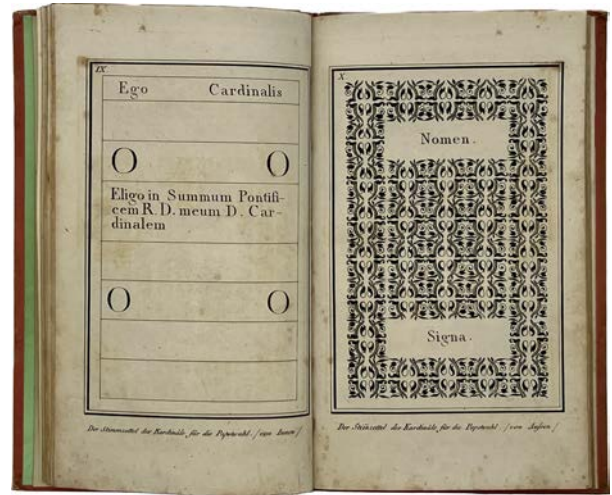 IX
Ego Cardinalis
O O
Eligo in Summum Pontifi-
cem R. D. meum D. Car-
dinalem
O O
Der Stimmzettel der Kardinäle für die Papstwahl. / von Innen /
X
Nomen.
Signa.
Der Stimzettel der Kardinäle für die Papstwahl. / von Aussen /